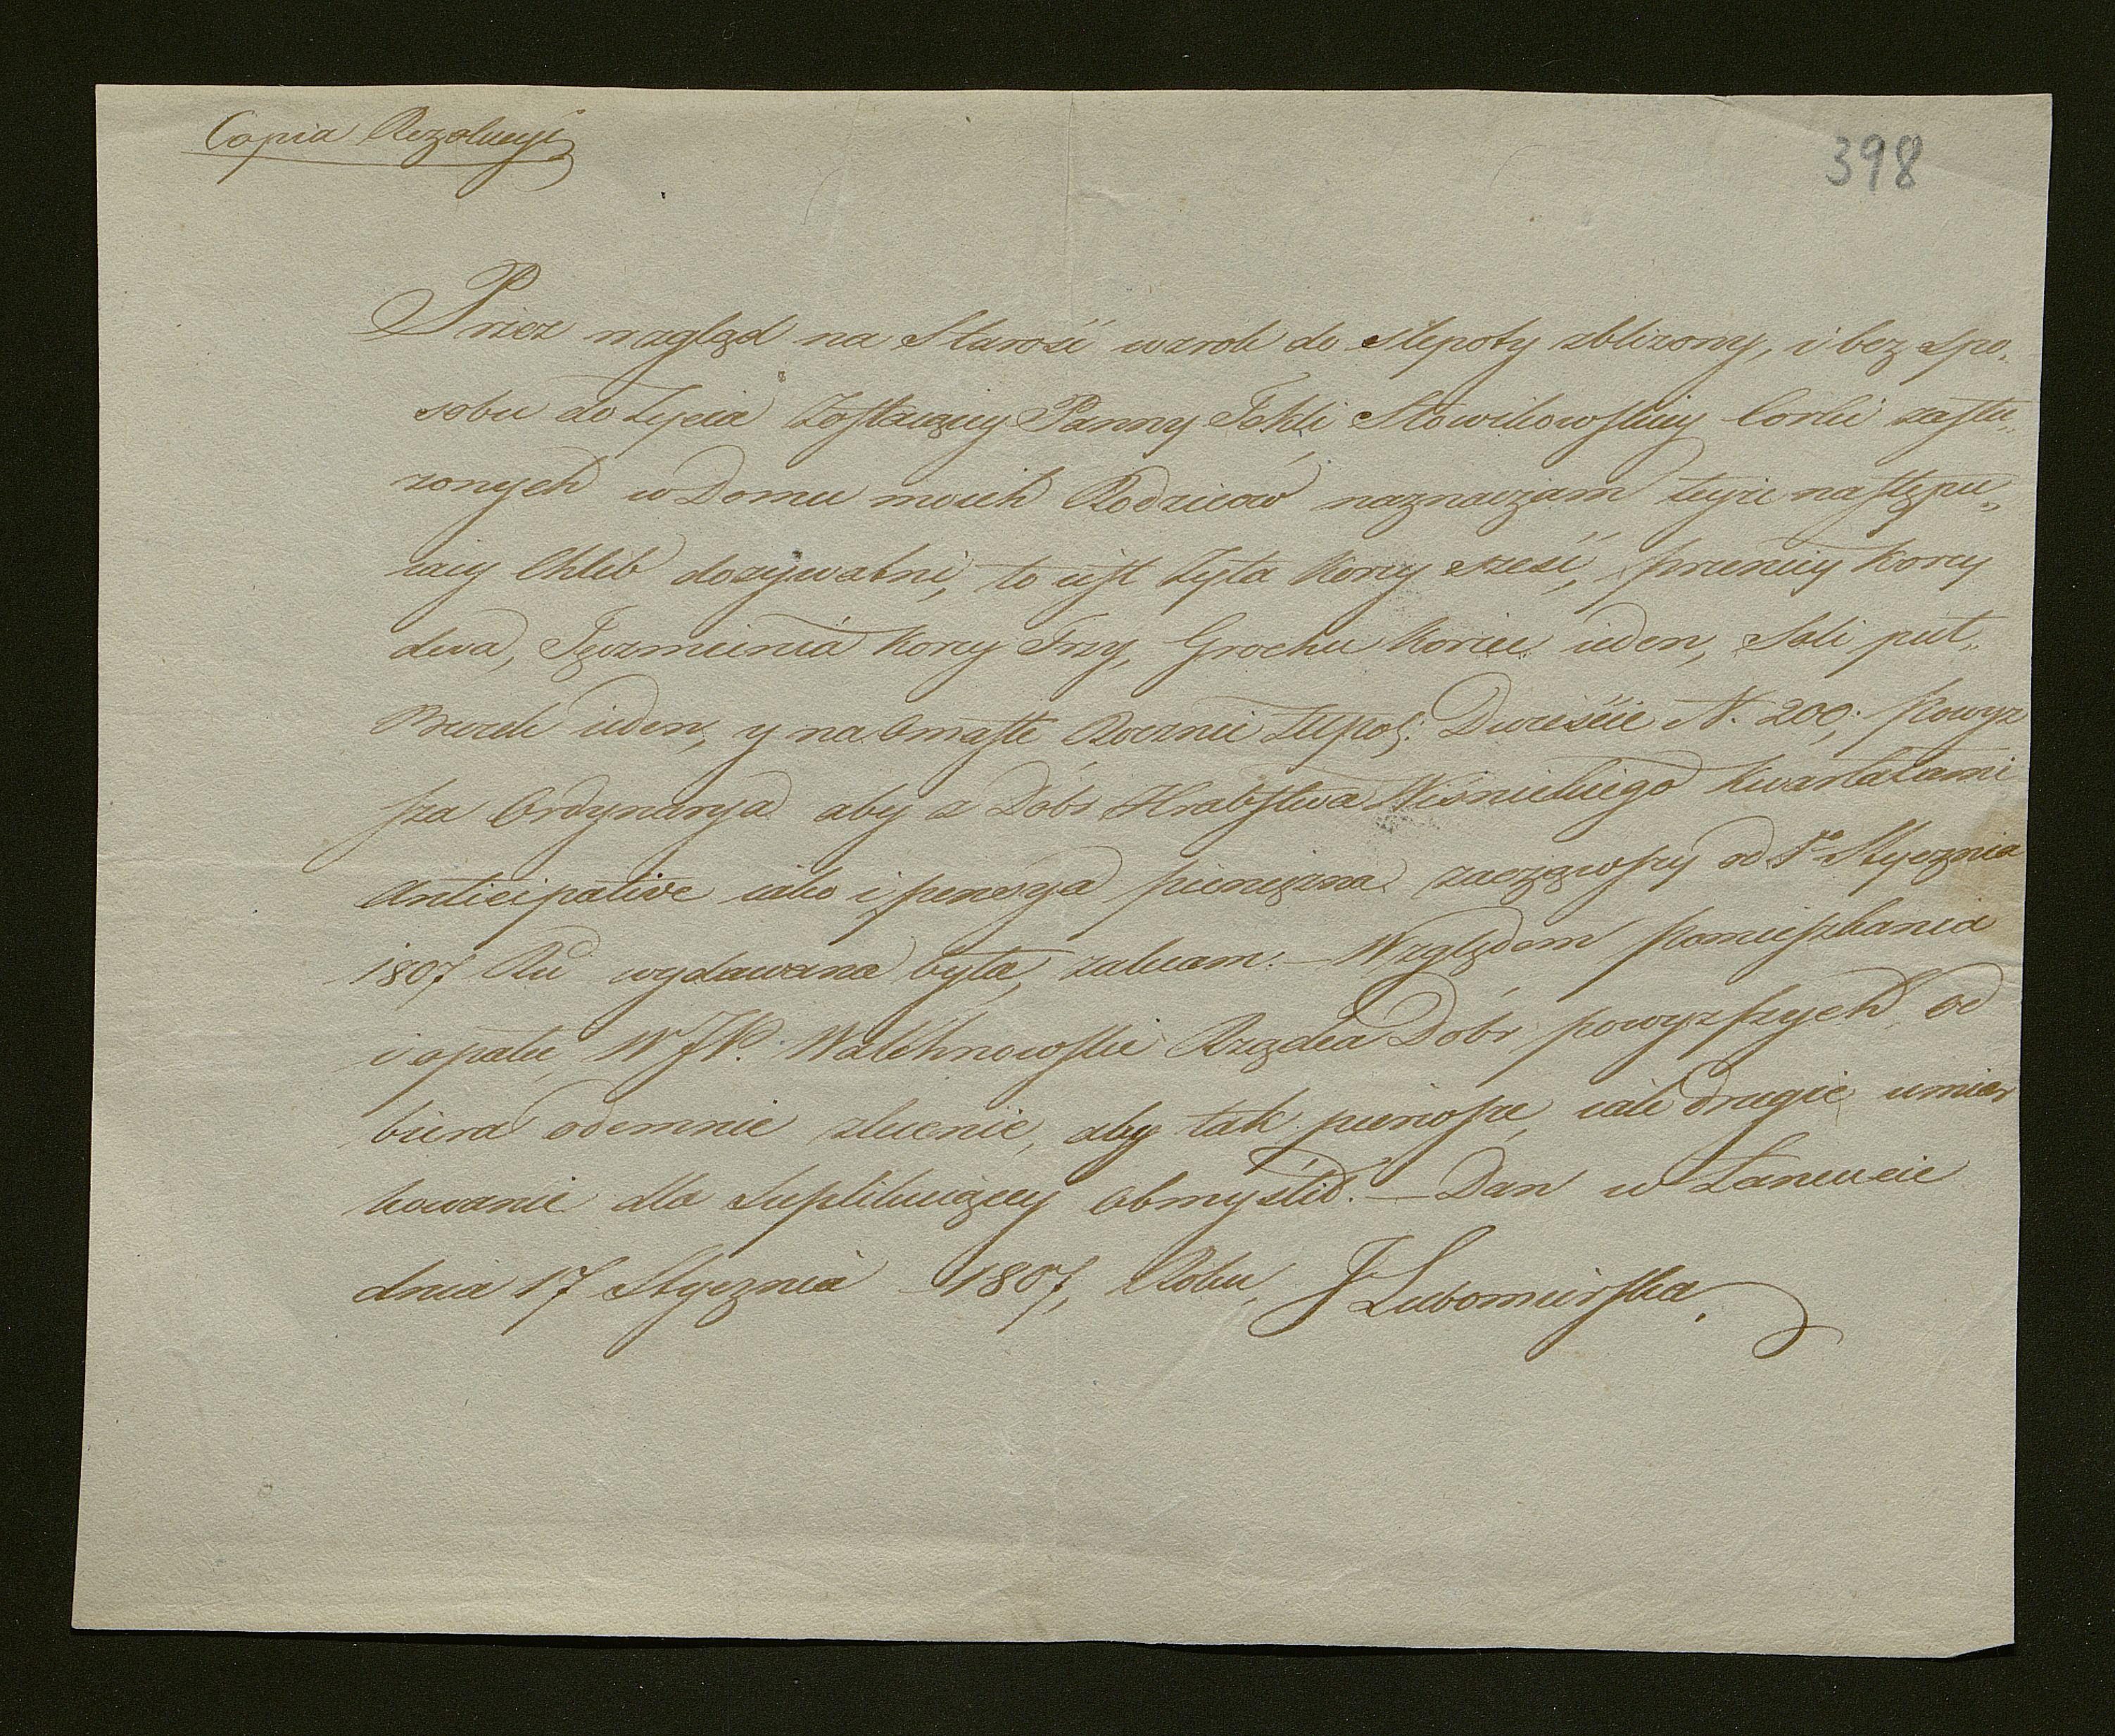 Copia Rezolucyi
398
Przez wzgląd na Starość wzrok do slepoty zblizony, i bez spo„
sobu do Zycia Zostaiącey Panny Tekli Słowikowskiey Corki zasłu„
zonych w Domu moich Rodziców naznaczam teyże następu„
iący Chleb dozywotni, to iest Zyta Korcy sześć, pszenicy Korcy
dwa, Jęczmienia Korcy Trzy, Grochu Korzec ieden, Soli puł„
Beczek ieden, y na Omastę Rocznie Złłpol: Dwieście N. 200; Powyz
sza Ordynarya aby z Dóbr Hrabstwa Wisnickiego Kwartałami
Anticipative iako i pensya pienięzna zacząwszy od 1º Stycznia
1807 Ru wydawana była, zalecam. – Względem Pomieszkania
i opału, W JP. Walichnowski Rządca Dóbr powyzszych od
biera odemnie zlecenie, aby tak pierwsze, iak drugie umiar
kowanie dla Suplikuiącey obmyślił. – Dan w Łancucie
dnia 17 Stycznia 1807, Roku, J Lubomirska.